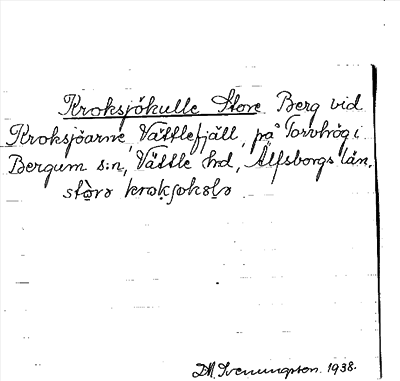 Kroksjökulle Store Berg vid
Kroksjöarne, Vättlefjäll, på Torvhög i
Bergum s:n, Vättle hd, Älfsborgs län.
stò̱rə krokʂokɵlə
D.M. Svenungsson. 1938.